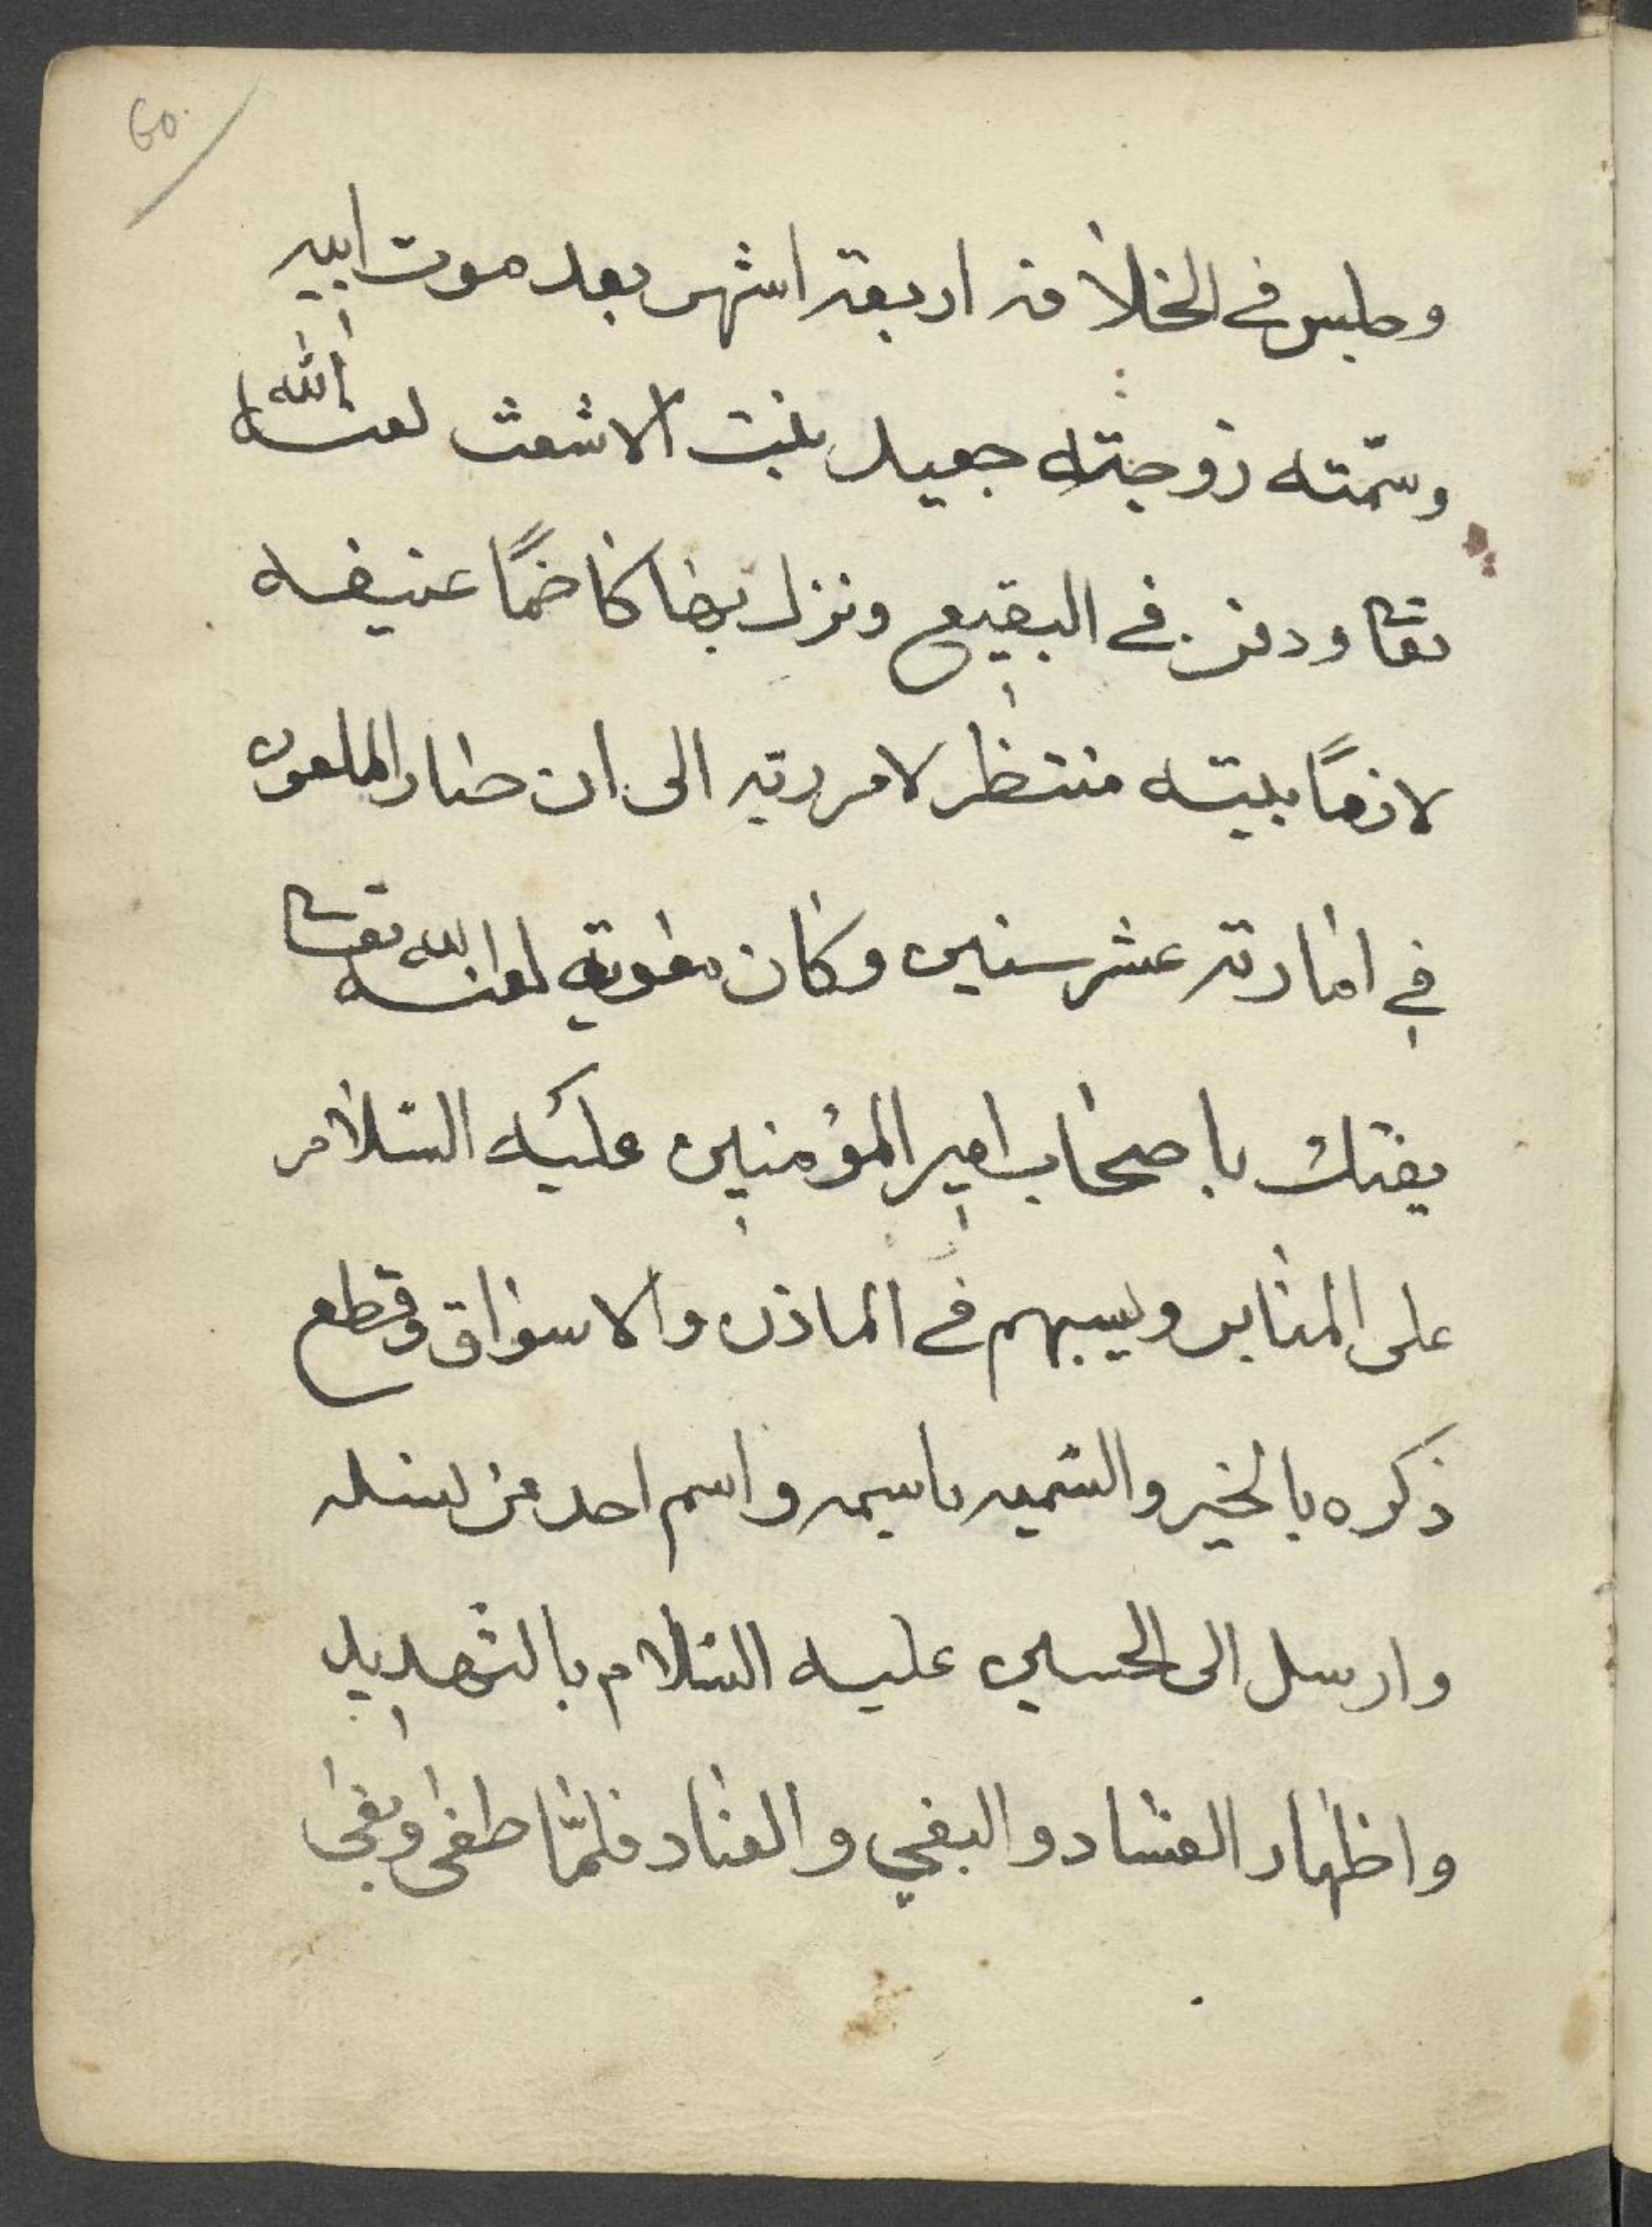 60
وجلس في الخلافة اربعة اشهر بعد موت ابيه
وسمّته زوجته جعيد بنت الاشعث لعنها الله
تعا ودفن في البقيع ونزل بها كاضمًا عنيضه
لازمًا بيته منتظر لامر ربّه الى ان صار الملعون
في امارته عشر سنين وكان معوية لعنه الله تعا
يفتك باصحاب امير المؤمنين عليه السّلام
على المنابر ويسبهم في الماذن والاسواق وقطع
ذكره بالخير والتسميه باسمه واسم احد من نسله
وارسل الى الحسين عليه السّلام بالتهديد
واظهار الفساد والبغي والعناد فلمّا طغى وبغى